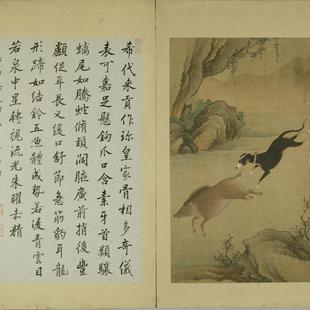 希代来貢作珎皇家骨相多奇儀
表可嘉足懸鉤爪口含素牙首類驤
螭尾如騰蛇脩頸闊腋廣前捎後豐
顱促耳長义緩口舒節急筋豹耳龍
形蹄如結鈴五魚體成勢若凌青雲目
若泉中星轉視流光朱曜赤精